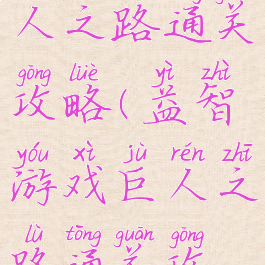 人之路通关
gōng lüè yì zhì
攻略(益智
yóu xì jù rén zhī
游戏巨人之
lù tōng guān gōng
路通关攻